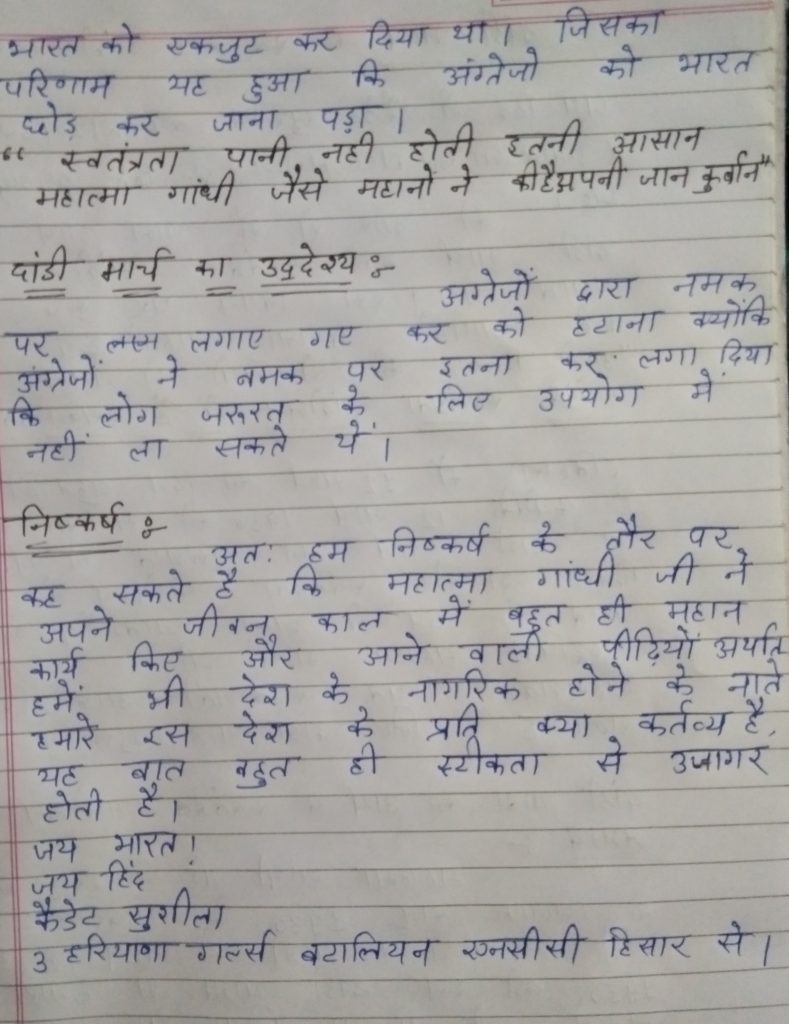 भारत को एकजुट कर दिया था। जिसका
परिणाम यह हुआ कि अंग्रेजो को भारत
छोड़ कर जाना पड़ा।
“ स्वतंत्रता पानी नही होती इतनी आसान
महात्मा गांधी जैसे महानो ने की है अपनी जान कुर्बान”
दांडी मार्च का उद्देश्य :-
अंग्रेजों द्वारा नमक
पर लगाए गए कर को हटाना क्योंकि
अंग्रेजों ने नमक पर इतना कर लगा दिया
कि लोग जरूरत के लिए उपयोग में
नहीं ला सकते थें।
निष्कर्ष :-
अत: हम निष्कर्ष के तौर पर
कह सकते है कि महात्मा गांधी जी ने
अपने जीवन काल में बहुत ही महान
कार्य किए और आने वाली पीढ़ियों अर्थात
हमें भी देश के नागरिक होने के नाते
हमारे इस देश के प्रति क्या कर्तव्य है,
यह बात बहुत ही स्टीकता से उजागर
होती है।
जय भारत!
जय हिंद
कैडेट सुशीला
3 हरियाणा गर्ल्स बटालियन एनसीसी हिसार से।